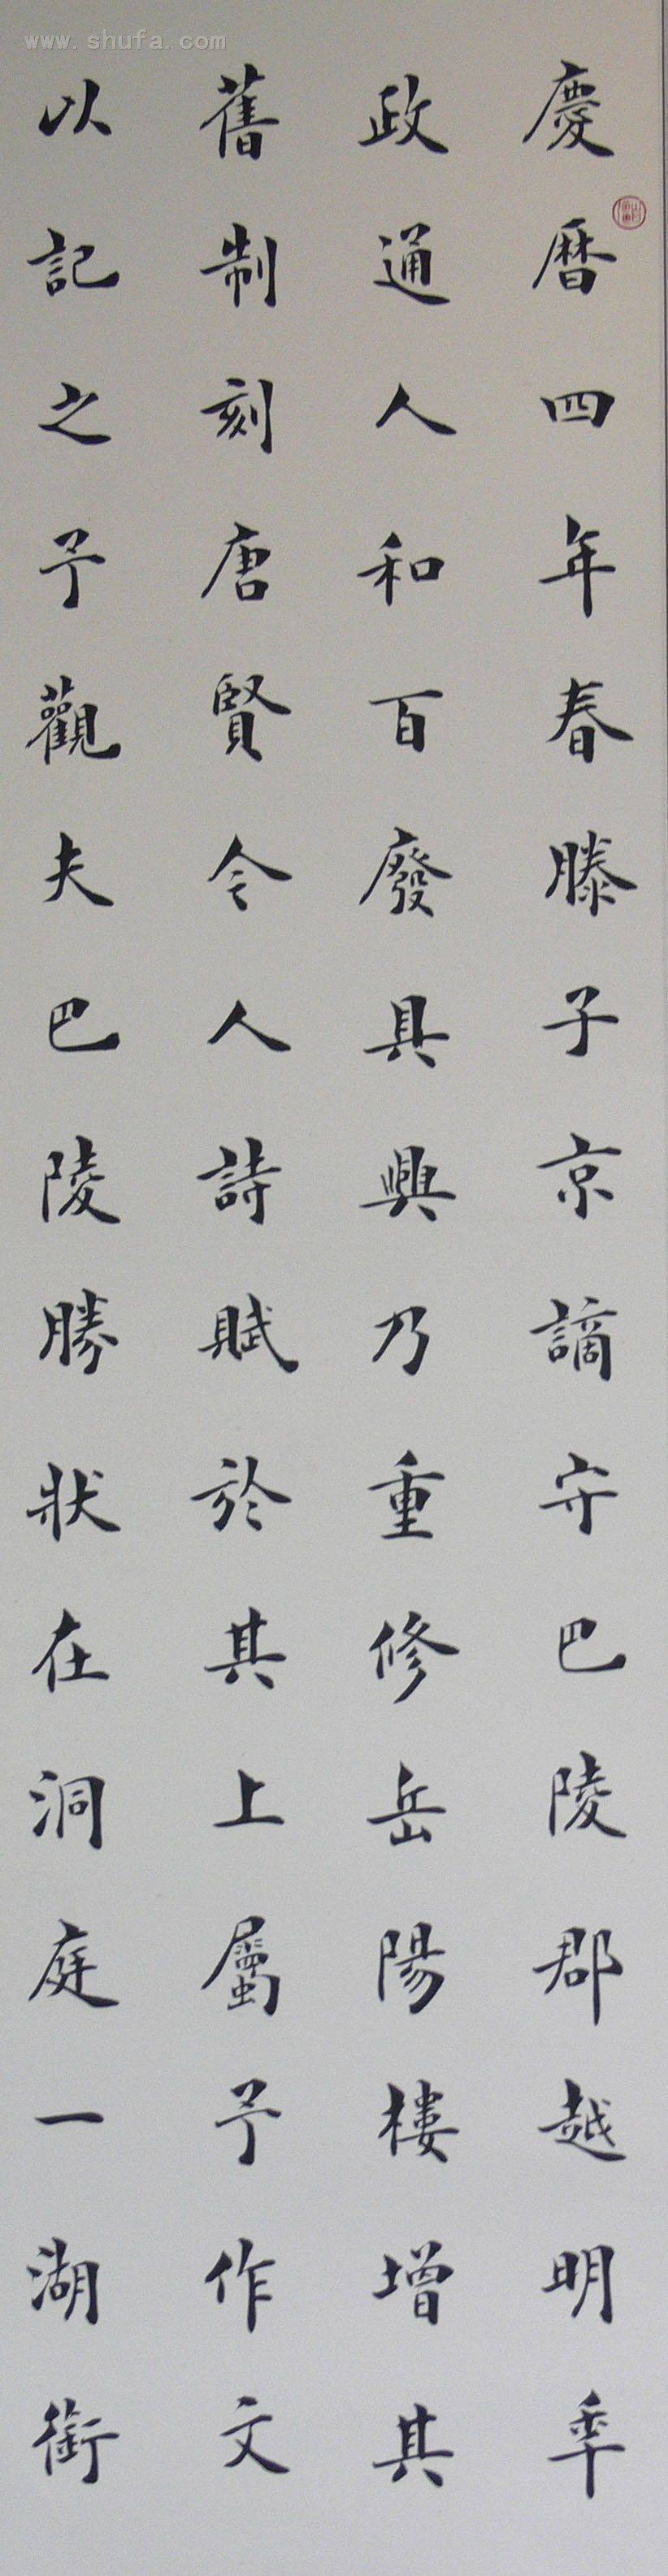 慶曆四年春滕子京謫守巴陵郡越明年
政通人和百廢具興乃重修岳陽樓增其
舊制刻唐賢今人詩賦於其上屬予作文
以記之予觀夫巴陵勝狀在洞庭一湖銜
www.shufa.com